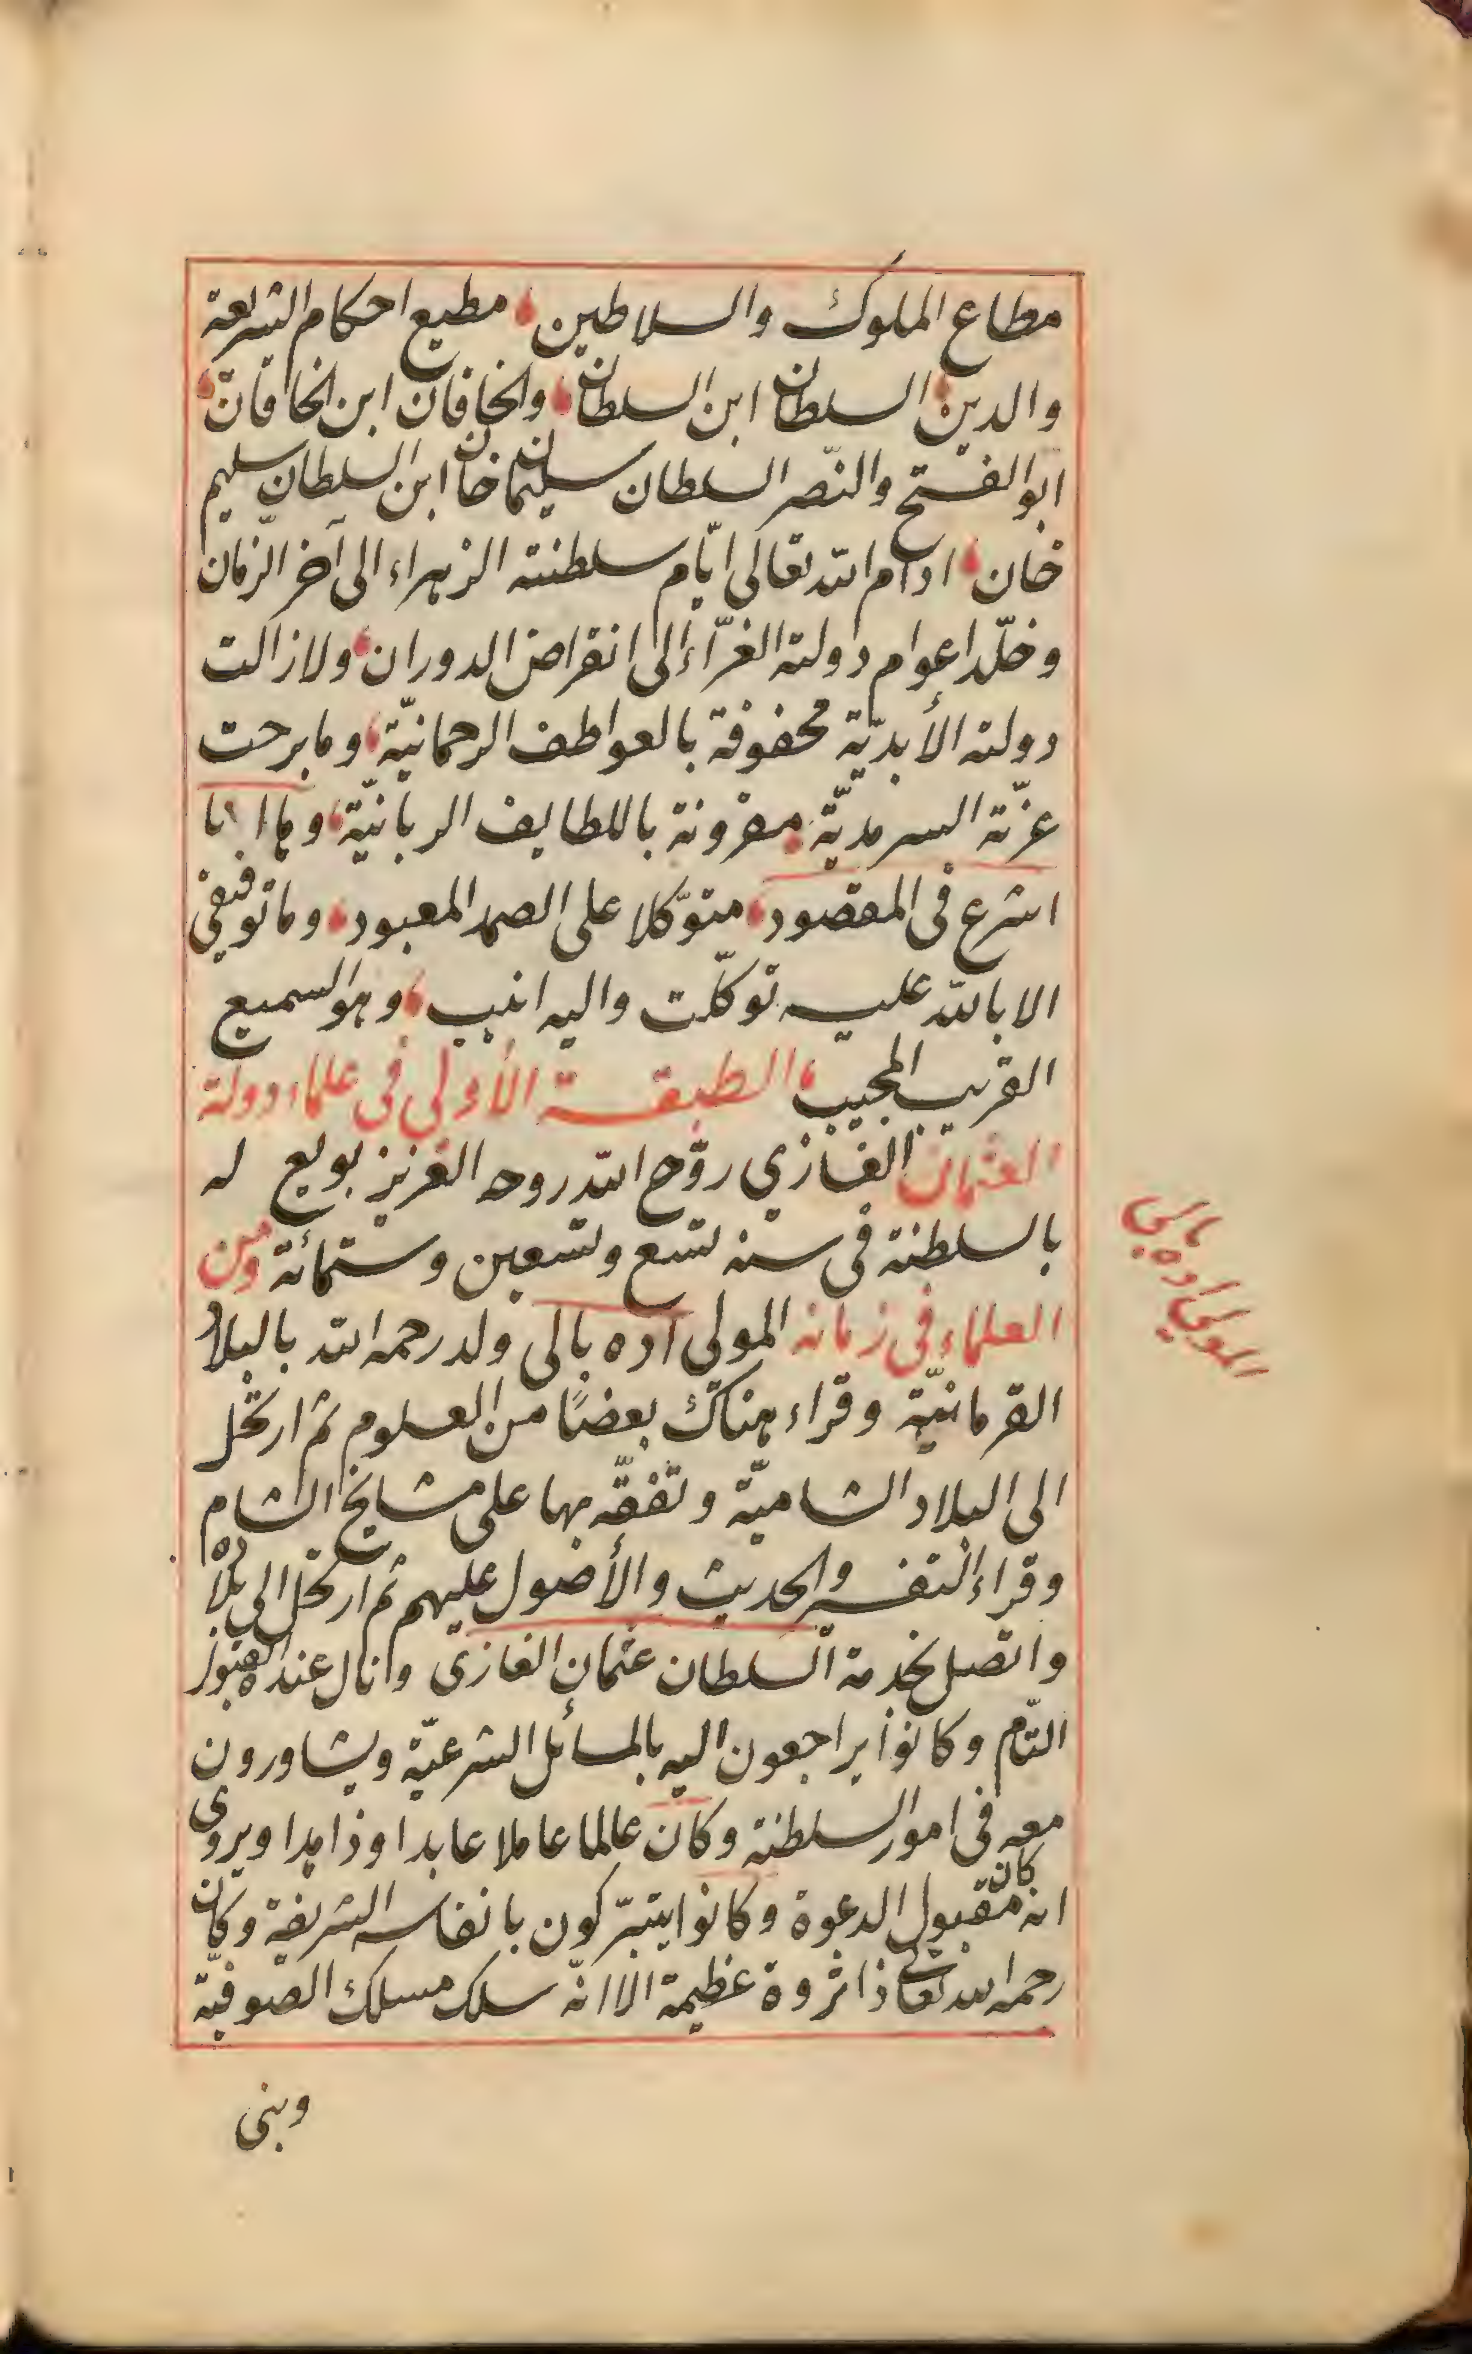 مطاع الملوك والسلاطين مطيع احكام الشريعة
والدين السلطان ابن السلطان والخاقان ابن الخاقان
ابو الفتح والنّصر السلطان سليمان خان ابن السلطان سليم
خان ادام الله تعالى ايّام سلطنته الزهراء الى آخر الزّمان
وخلّد اعوام دولته الغرّاء الى انقراض الدوران ولازالت
دولته الأبديّة محفوفة بالعواطف الرحمانيّة ومابرحت
عزّته السرمديّة مقرونة باللطايف الربانيّة وها انا
اشرع فى المقصود متوكّلا على الصمد المعبود وماتوفيقى
الا بالله عليه توكّلت واليه انيب وهو السميع
القريب المجيب الطبقة الأولى فى علماء دولة
العثمان الغازي روّح الله روحه العزيز بويع له
بالسلطنة فى سنه تسع وتسعين وستمائة ومن
العلماء فى زمانه المولى اده بالى ولد رحمه الله بالبلاد
القرمانيّة وقراء هناك بعضًا من العلوم ثم ارتحل
الى البلاد الشاميّة وتفقّه بها على مشايخ الشام
وقراء التفسير والحديث والأصول عليهم ثم ارتحل الى بلاده
واتصل بخدمة السلطان عثمان الغازى ونال عنده القبول
التّام وكانوا يراجعون اليه بالمسائل الشرعيّة ويشاورون
معه فى امور السلطنة وكان عالما عاملا عابدا وزاهدا ويروى
انه كان مقبول الدعوة وكانوا يتبرّكون بانفاسه الشريفة وكان
رحمه الله تعالى ذا ثروة عظيمة الا انّه سلك مسلك الصوفيّة
وبنى
المولى اده بالى